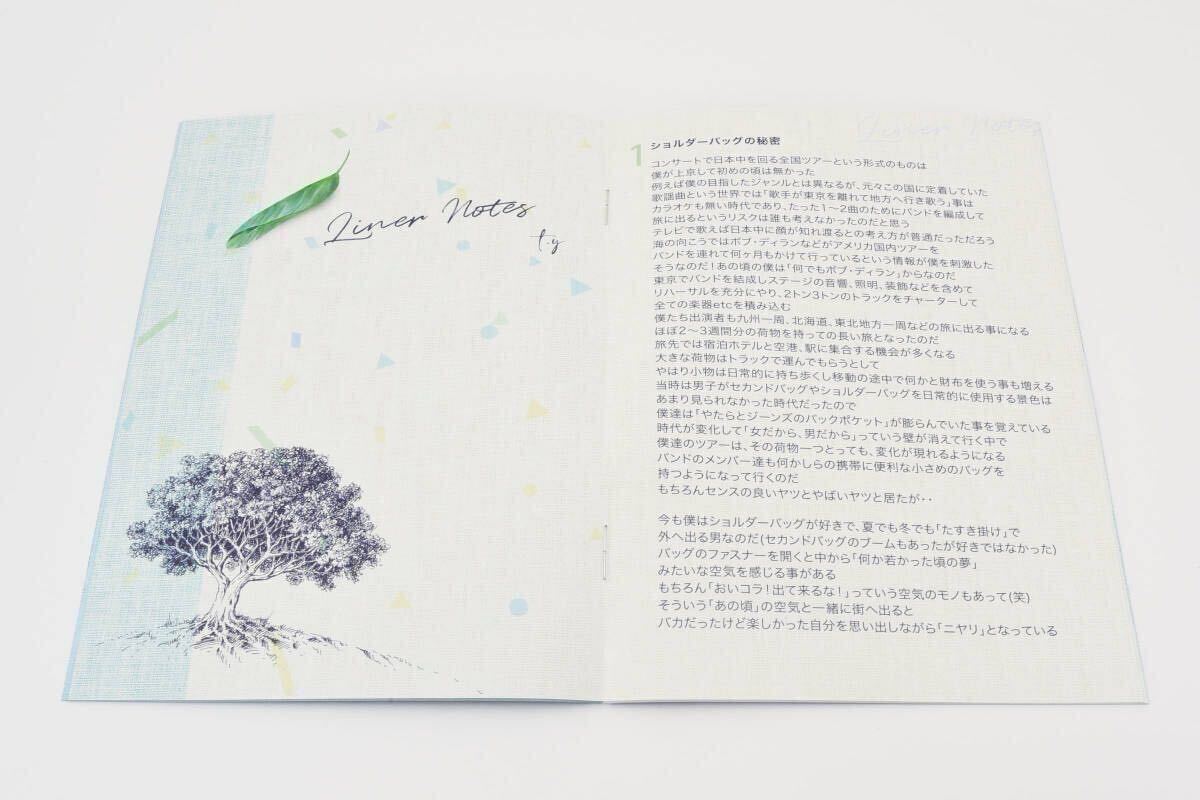 Liner Notes
t.y
Liner Notes
1
ショルダーバッグの秘密
コンサートで日本中を回る全国ツアーという形式のものは
僕が上京して初めの頃は無かった
例えば僕の目指したジャンルとは異なるが、元々この国に定着していた
歌謡曲という世界では「歌手が東京を離れて地方へ行き歌う」事は
カラオケも無い時代であり、たった1〜2曲のためにバンドを編成して
旅に出るというリスクは誰も考えなかったのだと思う
テレビで歌えば日本中に顔が知れ渡るとの考え方が普通だっただろう
海の向こうではボブ・ディランなどがアメリカ国内ツアーを
バンドを連れて何ヶ月もかけて行っているという情報が僕を刺激した
そうなのだ！あの頃の僕は「何でもボブ・ディラン」からなのだ
東京でバンドを結成しステージの音響、照明、装飾などを含めて
リハーサルを充分にやり、2トン3トンのトラックをチャーターして
全ての楽器etcを積み込む
僕たち出演者も九州一周、北海道、東北地方一周などの旅に出る事になる
ほぼ2〜3週間分の荷物を持っての長い旅となったのだ
旅先では宿泊ホテルと空港、駅に集合する機会が多くなる
大きな荷物はトラックで運んでもらうとして
やはり小物は日常的に持ち歩くし移動の途中で何かと財布を使う事も増える
当時は男子がセカンドバッグやショルダーバッグを日常的に使用する景色は
あまり見られなかった時代だったので
僕達は「やたらとジーンズのバックポケット」が膨らんでいた事を覚えている
時代が変化して「女だから、男だから」っていう壁が消えて行く中で
僕達のツアーは、その荷物一つとっても、変化が現れるようになる
バンドのメンバー達も何かしらの携帯に便利な小さめのバッグを
持つようになって行くのだ
もちろんセンスの良いヤツとやばいヤツと居たが・・
今も僕はショルダーバッグが好きで、夏でも冬でも「たすき掛け」で
外へ出る男なのだ(セカンドバッグのブームもあったが好きではなかった)
バッグのファスナーを開くと中から「何か若かった頃の夢」
みたいな空気を感じる事がある
もちろん「おいコラ！出て来るな！」っていう空気のモノもあって(笑)
そういう「あの頃」の空気と一緒に街へ出ると
バカだったけど楽しかった自分を思い出しながら「ニヤリ」となっている